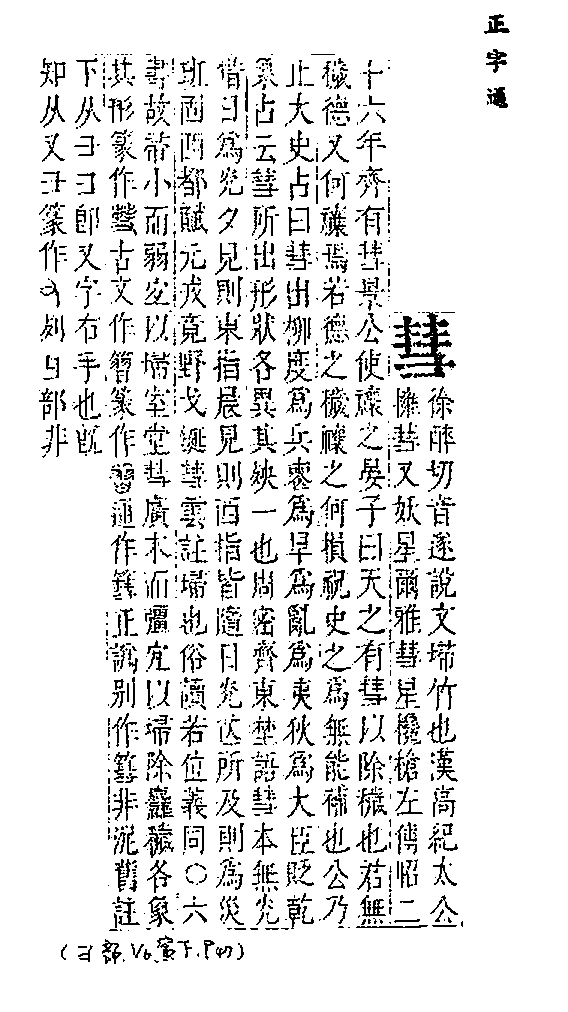 正字通
彗
徐醉切音遂說文埽竹也漢高紀太公
擁彗又妖星爾雅彗星欃槍左傳昭二
十六年齊有彗景公使禳之晏子曰天之有彗以除穢也君無
穢德又何禳焉若德之穢禳之何損祝史之爲無能補也公乃
止大史占曰彗出柳度爲兵喪爲旱爲亂爲夷狄爲大臣貶乾
象占云彗所出形狀各異其殃一也周密齊東埜語彗本無光
借日爲光夕見則東指晨見則西指皆隨日光芒所及則爲災
班固西都賦元戎竟野戈鋋彗雲註埽也俗讀若位義同○六
書故帚小而弱宜以埽室堂彗廣本而彊宜以埽除麤穢各象
其形篆作古文作篆作通作篲正譌別作篲非泥舊註
下从彐彐卽又字右手也旣
知从又彐篆作列彐部非
(彐部.V6.寅下.P47)